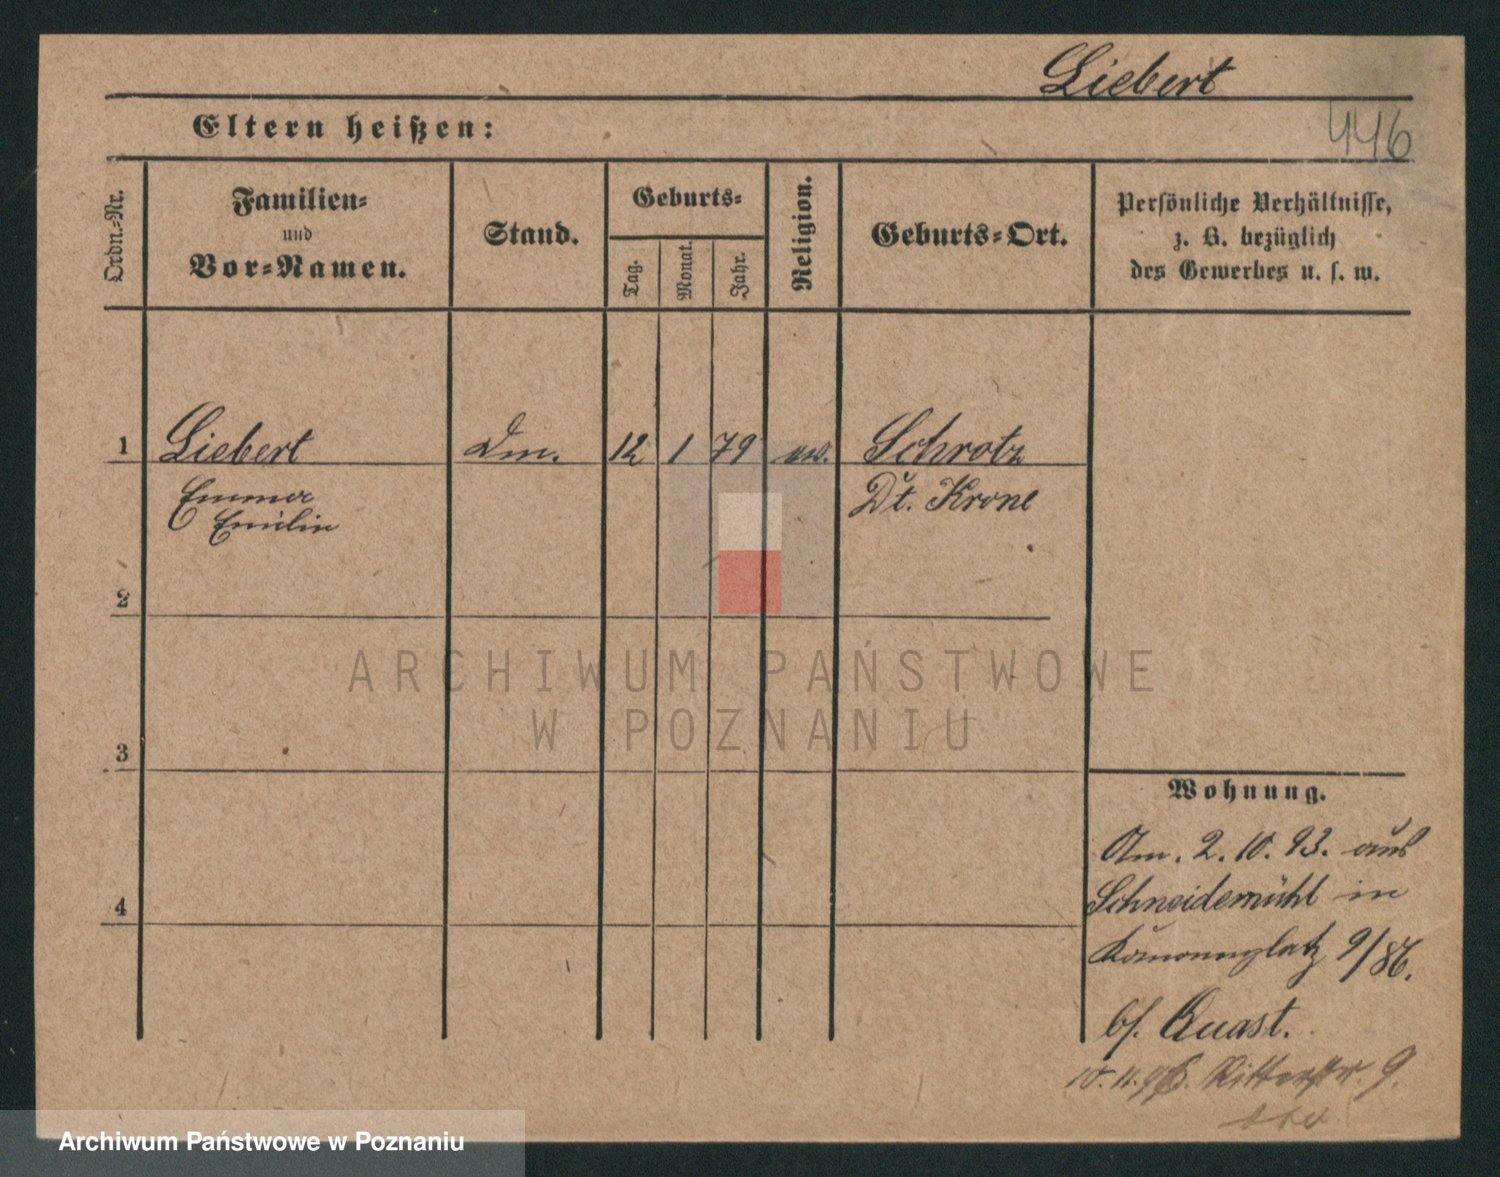 Liebert
446
Eltern heißen:
Ordn.-Nr.
Familien-
und
Vor-Namen.
Stand.
Geburts-
Tag.
Monat.
Jahr.
Religion.
Geburts-Ort.
Persönliche Verhältnisse,
z. B. bezüglich
des Gewerbes u. s. w.
1 Liebert Dm. 12 1 79 ev. Schrotz
Emma Dt. Krone
Emilie
2
ARCHIWUM PAŃSTWOWE
W POZNANIU
3
Wohnung.
Am. 2.10.93. aus
Schneidemühl in
Kanonenplatz 9/86.
bf. Quast.
Ritterstr. 9.
4
Archiwum Państwowe w Poznaniu